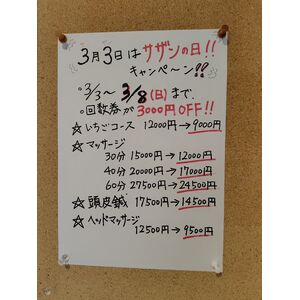 3月3日はサザンの日!!
キャンペーン!!
○3/3〜3/8(日)まで、
○回数券が3000円OFF!!
☆いちごコース 12000円→9000円
☆マッサージ
30分 15000円→12000円
40分 20000円→17000円
60分 27500円→24500円
☆頭皮鍼 17500円→14500円
☆ヘッドマッサージ
12500円→9500円